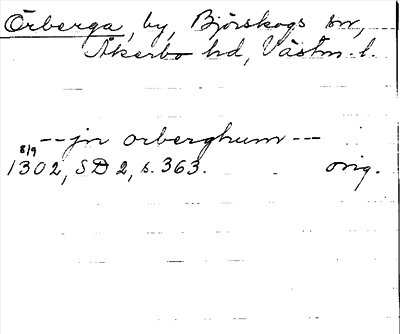 Örberga, by, Björskogs sn,
Åkerbo hd, Västm. l.
--jn orberghum--
8/9
1302, SD 2, s. 363. orig.